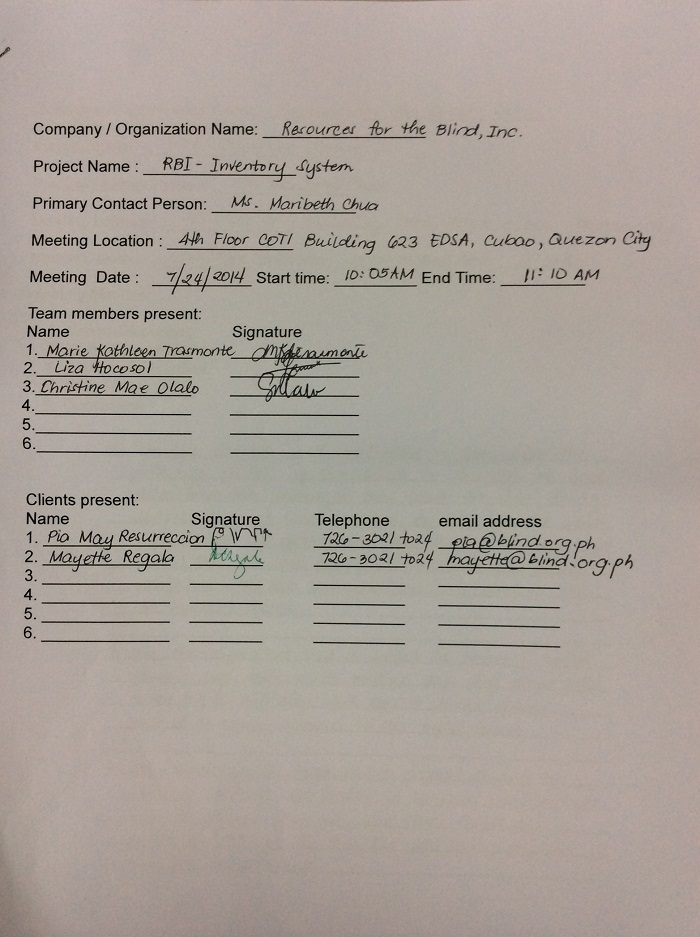 Company / Organization Name: Resources for the Blind, Inc.
Project Name : RBI - Inventory System
Primary Contact Person: Ms. Maribeth Chua
Meeting Location : 4th Floor COTI Building 623 EDSA, Cubao, Quezon City
Meeting Date : 7/24/2014 Start time: 10:05AM End Time: 11:10 AM
Team members present:
Name Signature
1. Marie Kathleen Trasmonte
2. Liza Hocosol
3. Christine Mae Olalo
4.
5.
6.
Clients present:
Name Signature Telephone email address
1. Pia May Resurreccion 726-3021 to24 pia@blind.org.ph
2. Mayette Regala 726-3021 to24 mayette@blind.org.ph
3.
4.
5.
6.